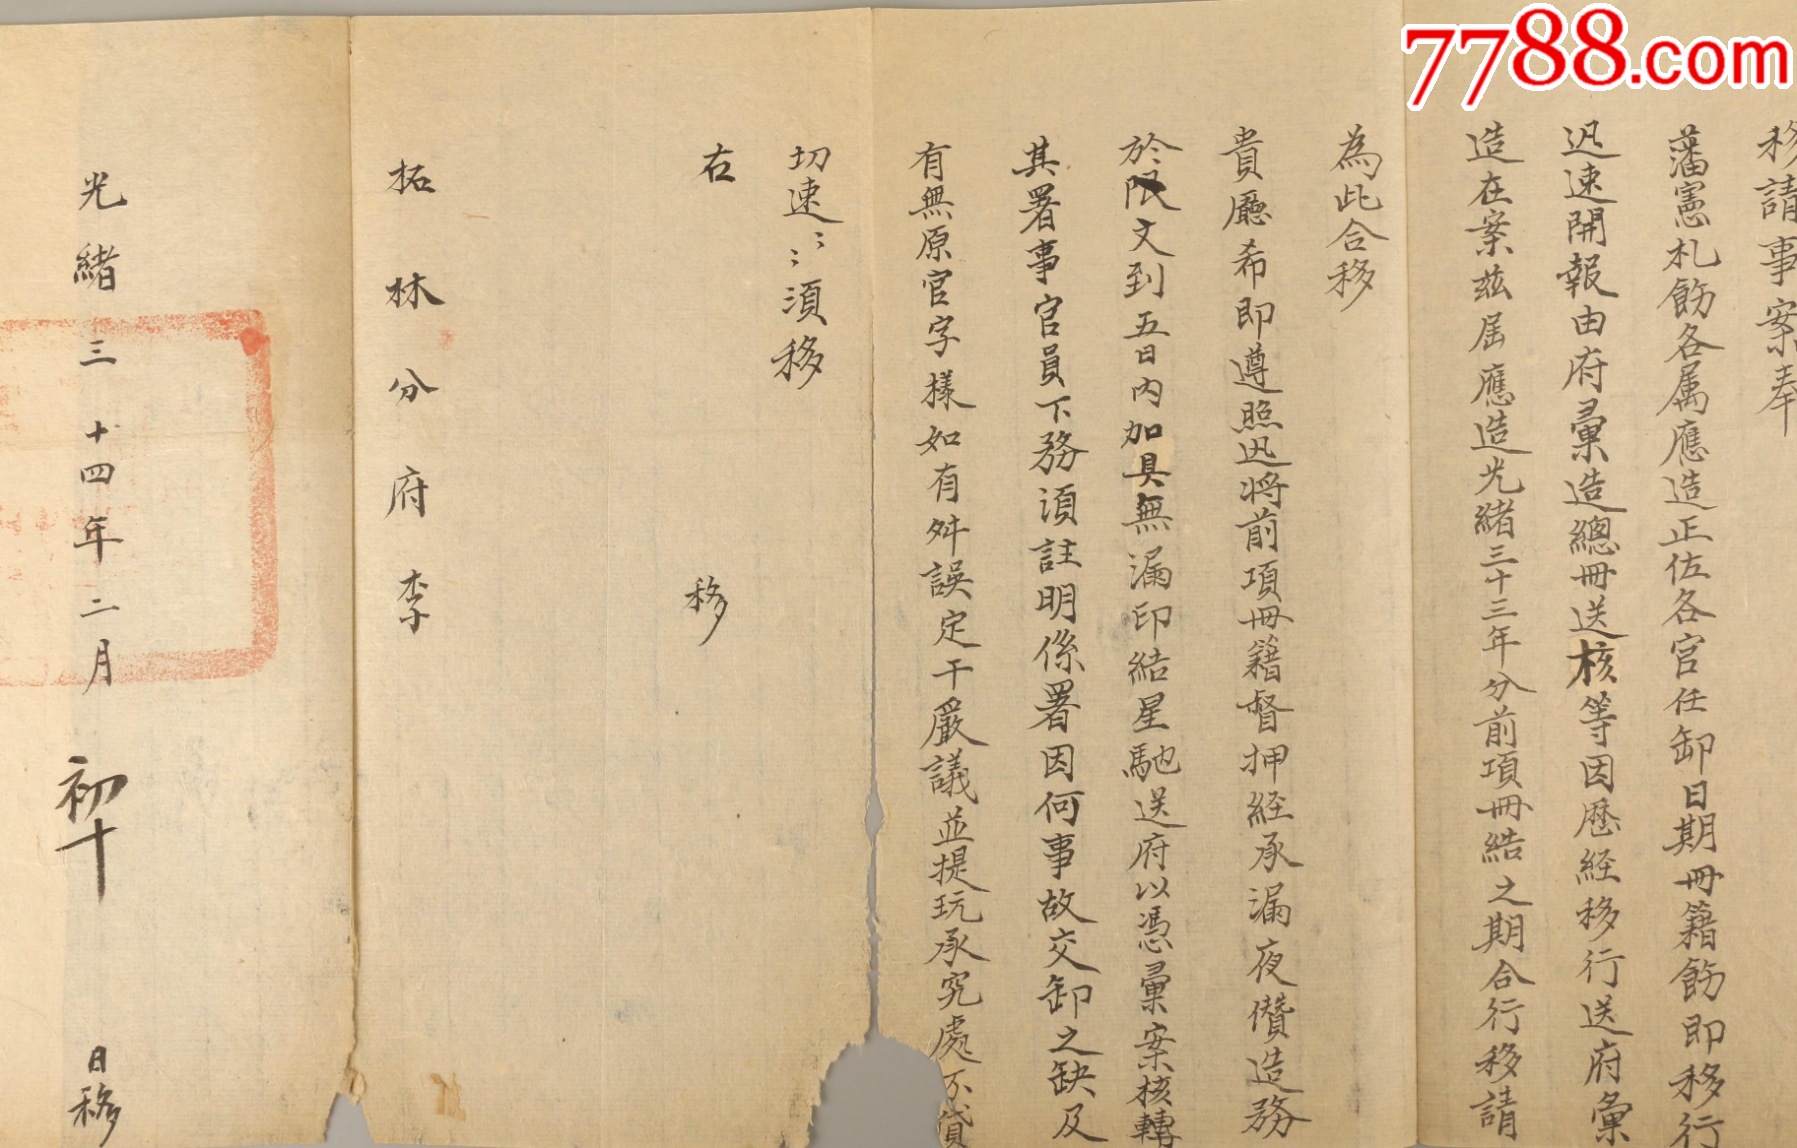 7788.com
移請事案奉
藩憲札飭各属應造正佐各官任卸日期冊籍飭即移行
迅速開報由府彙造總冊送核等因歷経移行送府彙
造在案茲届應造光緒三十三年分前項冊結之期合行移請
為此合移
貴廳希即遵照迅将前項冊籍督押経承漏夜儹造務
於限文到五日内加具無漏印結星馳送府以憑彙案核轉
其署事官員下務須註明係署因何事故交卸之缺及
有無原官字樣如有舛誤定干嚴議並提玩承究處不貸
切速〻〻須移
右 移
柘林分府李
光緒三十四年二月初十日移